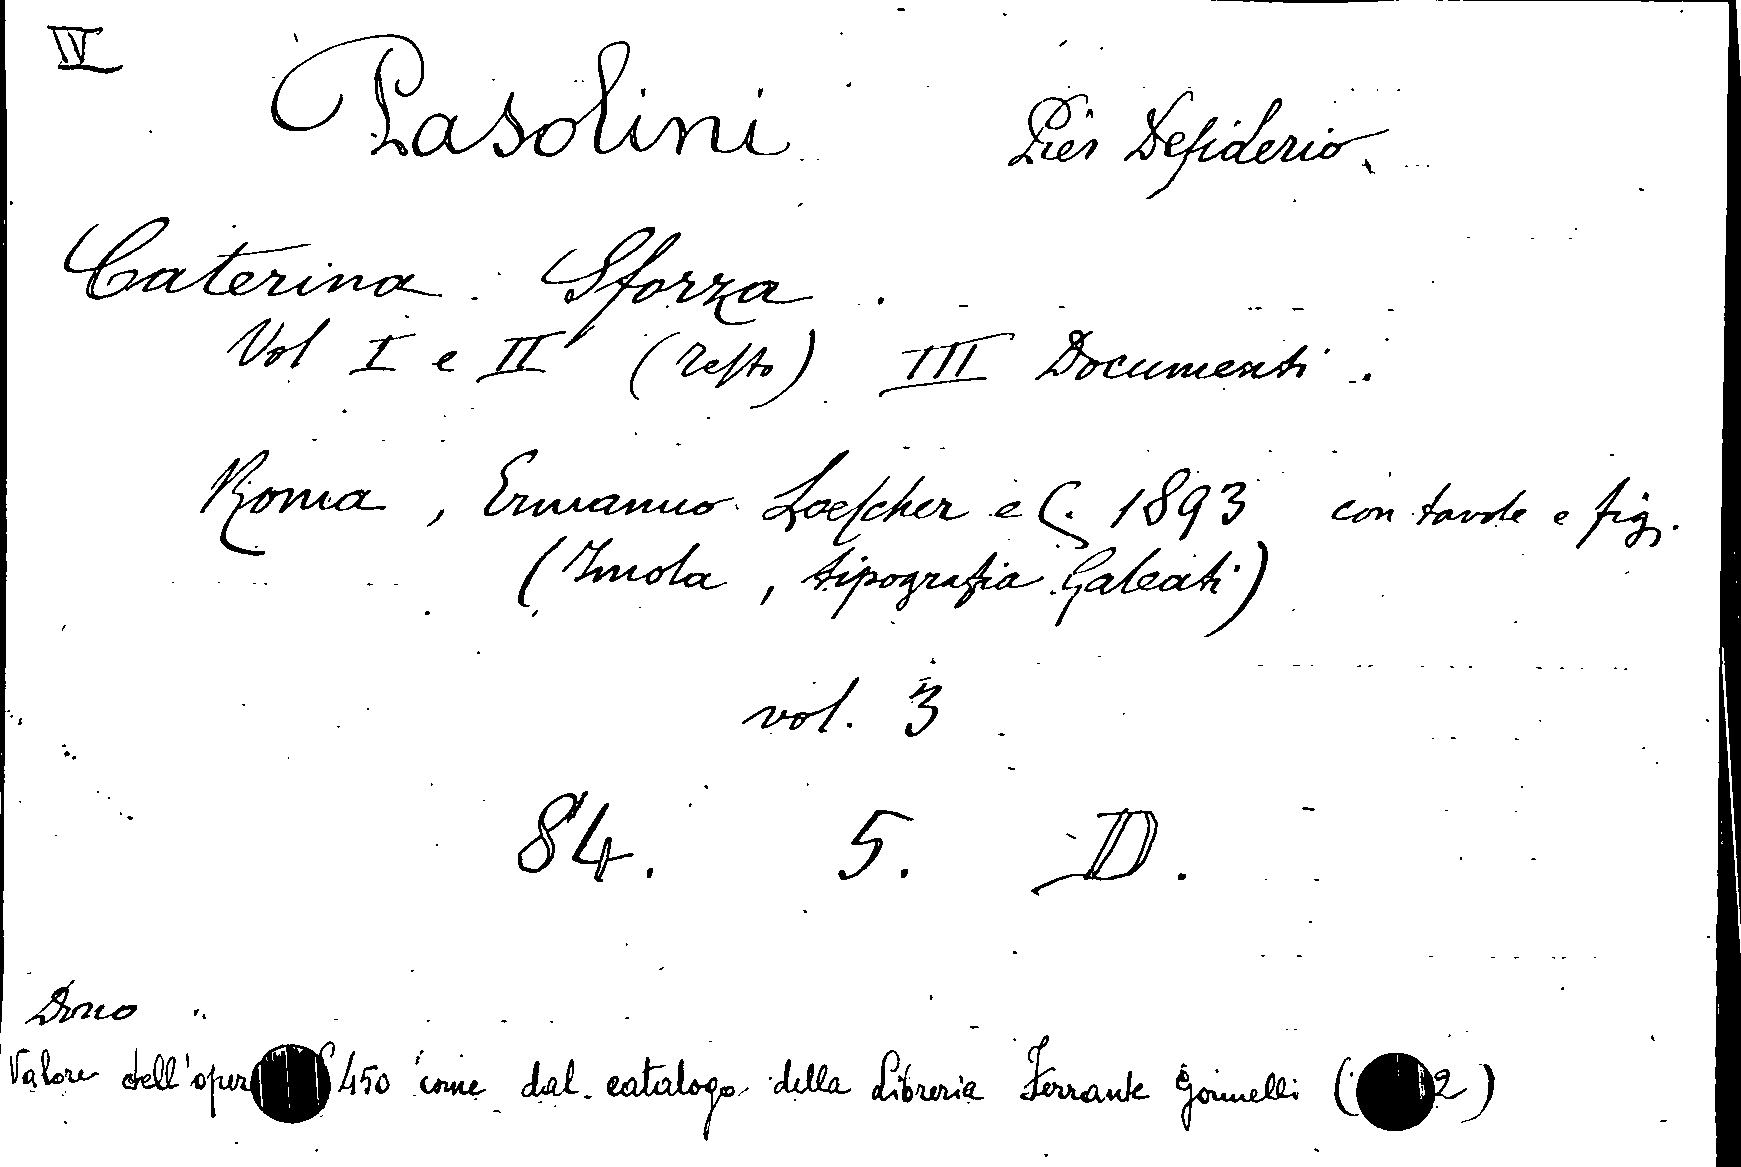 IV
Pasolini Pier Desiderio.
Caterina Sforza.
Vol I e II (testo) III Documenti.
Roma, Ermanno Loescher e C. 1893 con tavole e fig.
(Imola, tipografia Galeati)
vol. 3
84. 5. D.
Dono
Valore dell'oper 450 come dal catalogo della Libreria Ferrante Gonnelli ( 2)